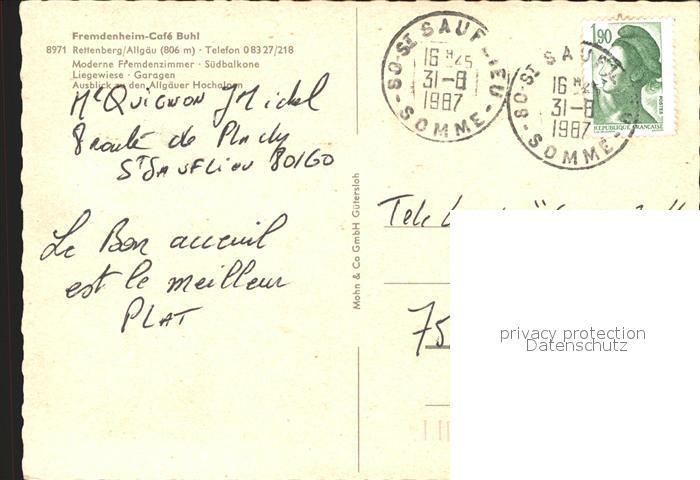 Fremdenheim-Café Buhl
8971 Rettenberg/Allgäu (806 m) · Telefon 0 83 27/218
Moderne Fremdenzimmer · Südbalkone
Liegewiese · Garagen
Ausblick zu den Allgäuer Hochalpen
Mr Quignon Michel
8 route de
St Sauflieu 80160
Le Bon acceuil
est le meilleur
PLAT
Mohn & Co GmbH Gütersloh
80-St SAUFLIEU
16 H 45
31-8
1987
-SOMME-
80-St SAUFLIEU
16 H 45
31-8
1987
-SOMME-
1,90
POSTES
REPUBLIQUE FRANÇAISE
Tele
75
privacy protection
Datenschutz